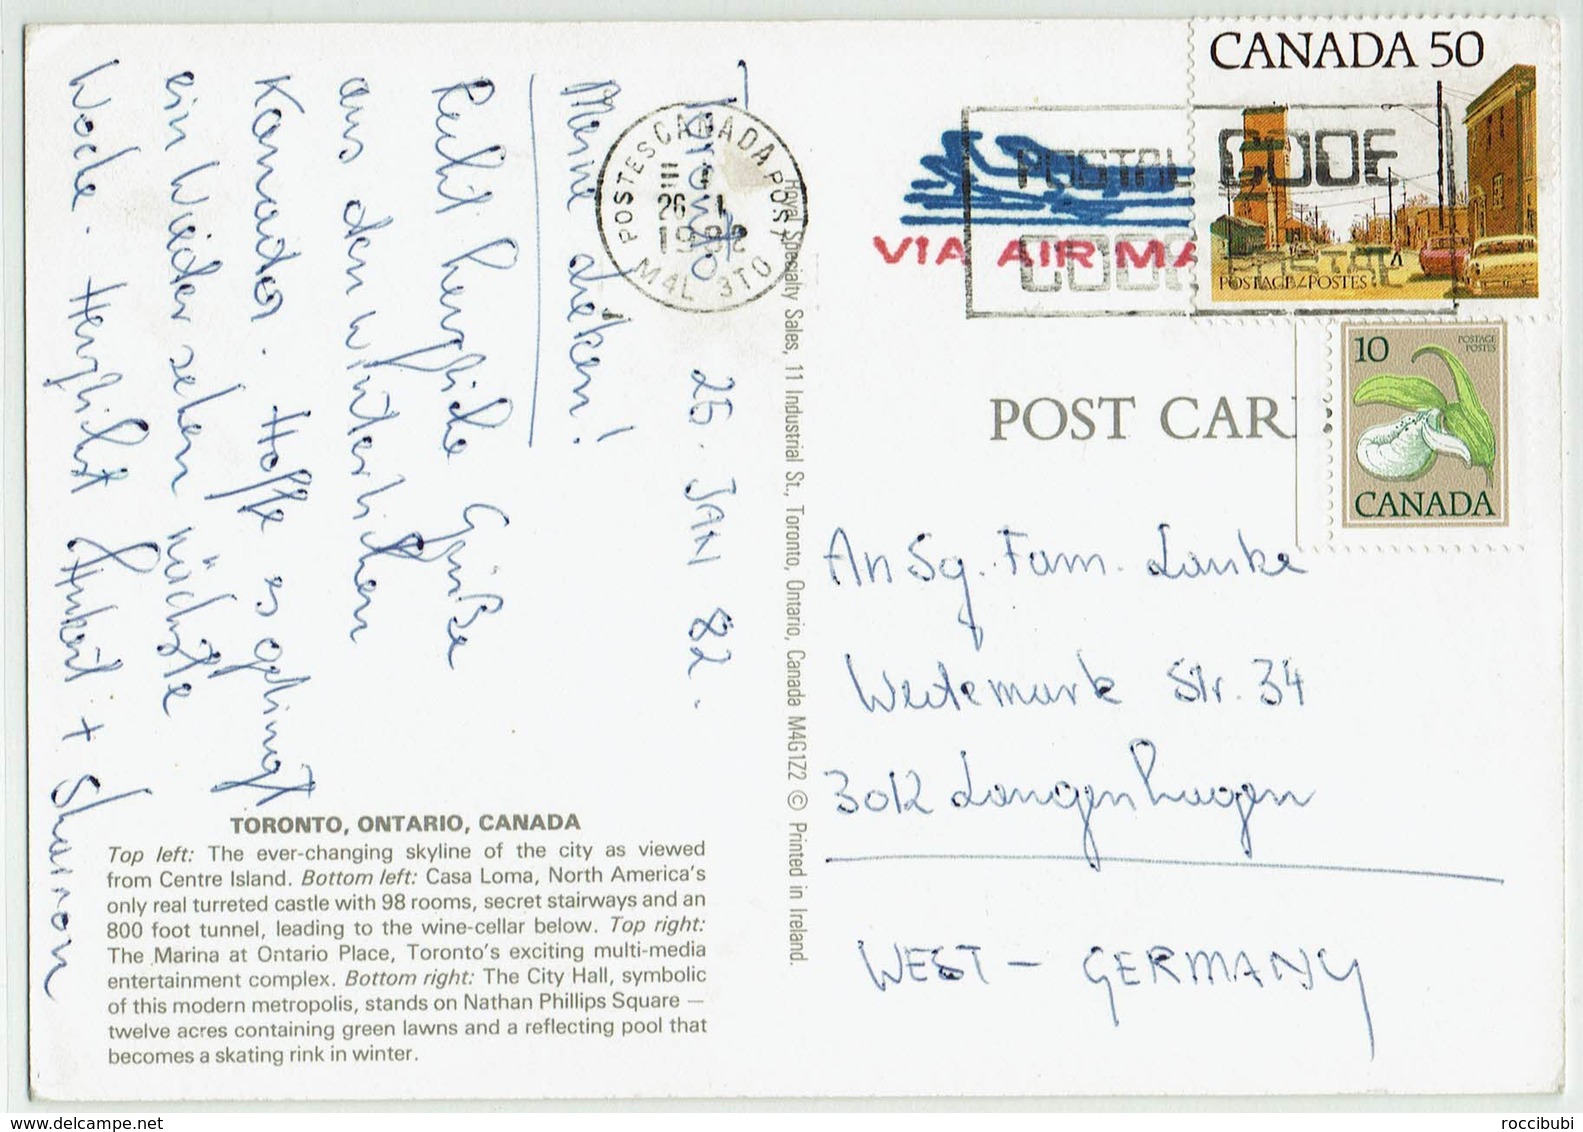 Toronto 25. JAN 82.
Meine Lieben!
Recht herzliche Grüße
aus dem winterlichen
Kanada. Hoffe es gelingt
ein Wiedersehen nächste
Woche. Herzlichst + Sharron
TORONTO, ONTARIO, CANADA
Top left: The ever-changing skyline of the city as viewed
from Centre Island. Bottom left: Casa Loma, North America's
only real turreted castle with 98 rooms, secret stairways and an
800 foot tunnel, leading to the wine-cellar below. Top right:
The Marina at Ontario Place, Toronto's exciting multi-media
entertainment complex. Bottom right: The City Hall, symbolic
of this modern metropolis, stands on Nathan Phillips Square —
twelve acres containing green lawns and a reflecting pool that
becomes a skating rink in winter.
Royal Specialty Sales, 11 Industrial St., Toronto, Ontario, Canada M4G1Z2 © Printed in Ireland.
POSTES CANADA POST
26 I
1982
M4L 3T0
VIA AIR MA
POSTAL CODE
CODE POSTAL
CANADA 50
POSTAGE/POSTES
10
POSTAGE
POSTES
CANADA
POST CAR
An Sg. Fam. Lanke
Weitemark Str. 34
3012 Langenhagen
WEST - GERMANY
www.delcampe.net
roccibubi